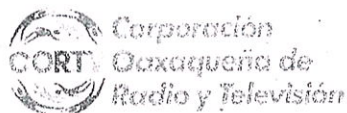 CORTV
Corporación
Oaxaqueña de
Radio y Televisión